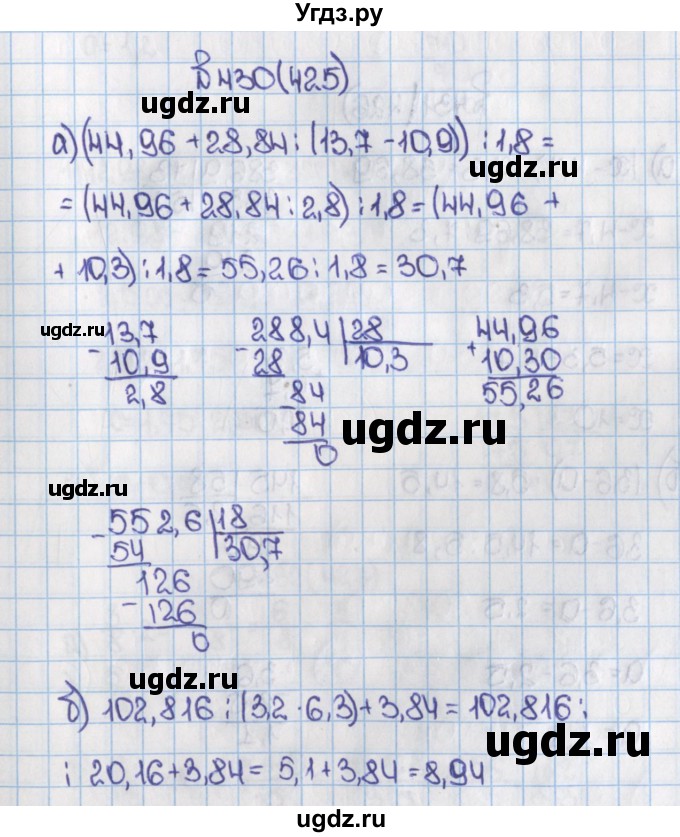 Угдз.ру
В 430(425)
ugdz.ru
а) (44,96 + 28,84 : (13,7 - 10,9)) : 1,8 =
ugdz.ru
= (44,96 + 28,84 : 2,8) : 1,8 = (44,96 +
+ 10,3) : 1,8 = 55,26 : 1,8 = 30,7
ugdz.ru
- 13,7
10,9
2,8
- 288,4 | 28
28 10,3
- 84
84
0
+ 44,96
10,30
55,26
ugdz.ru
ugdz.ru
- 552,6 | 18
54 30,7
- 126
126
0
ugdz.ru
б) 102,816 : (3,2 · 6,3) + 3,84 = 102,816 :
ugdz.ru
: 20,16 + 3,84 = 5,1 + 3,84 = 8,94
ugdz.ru